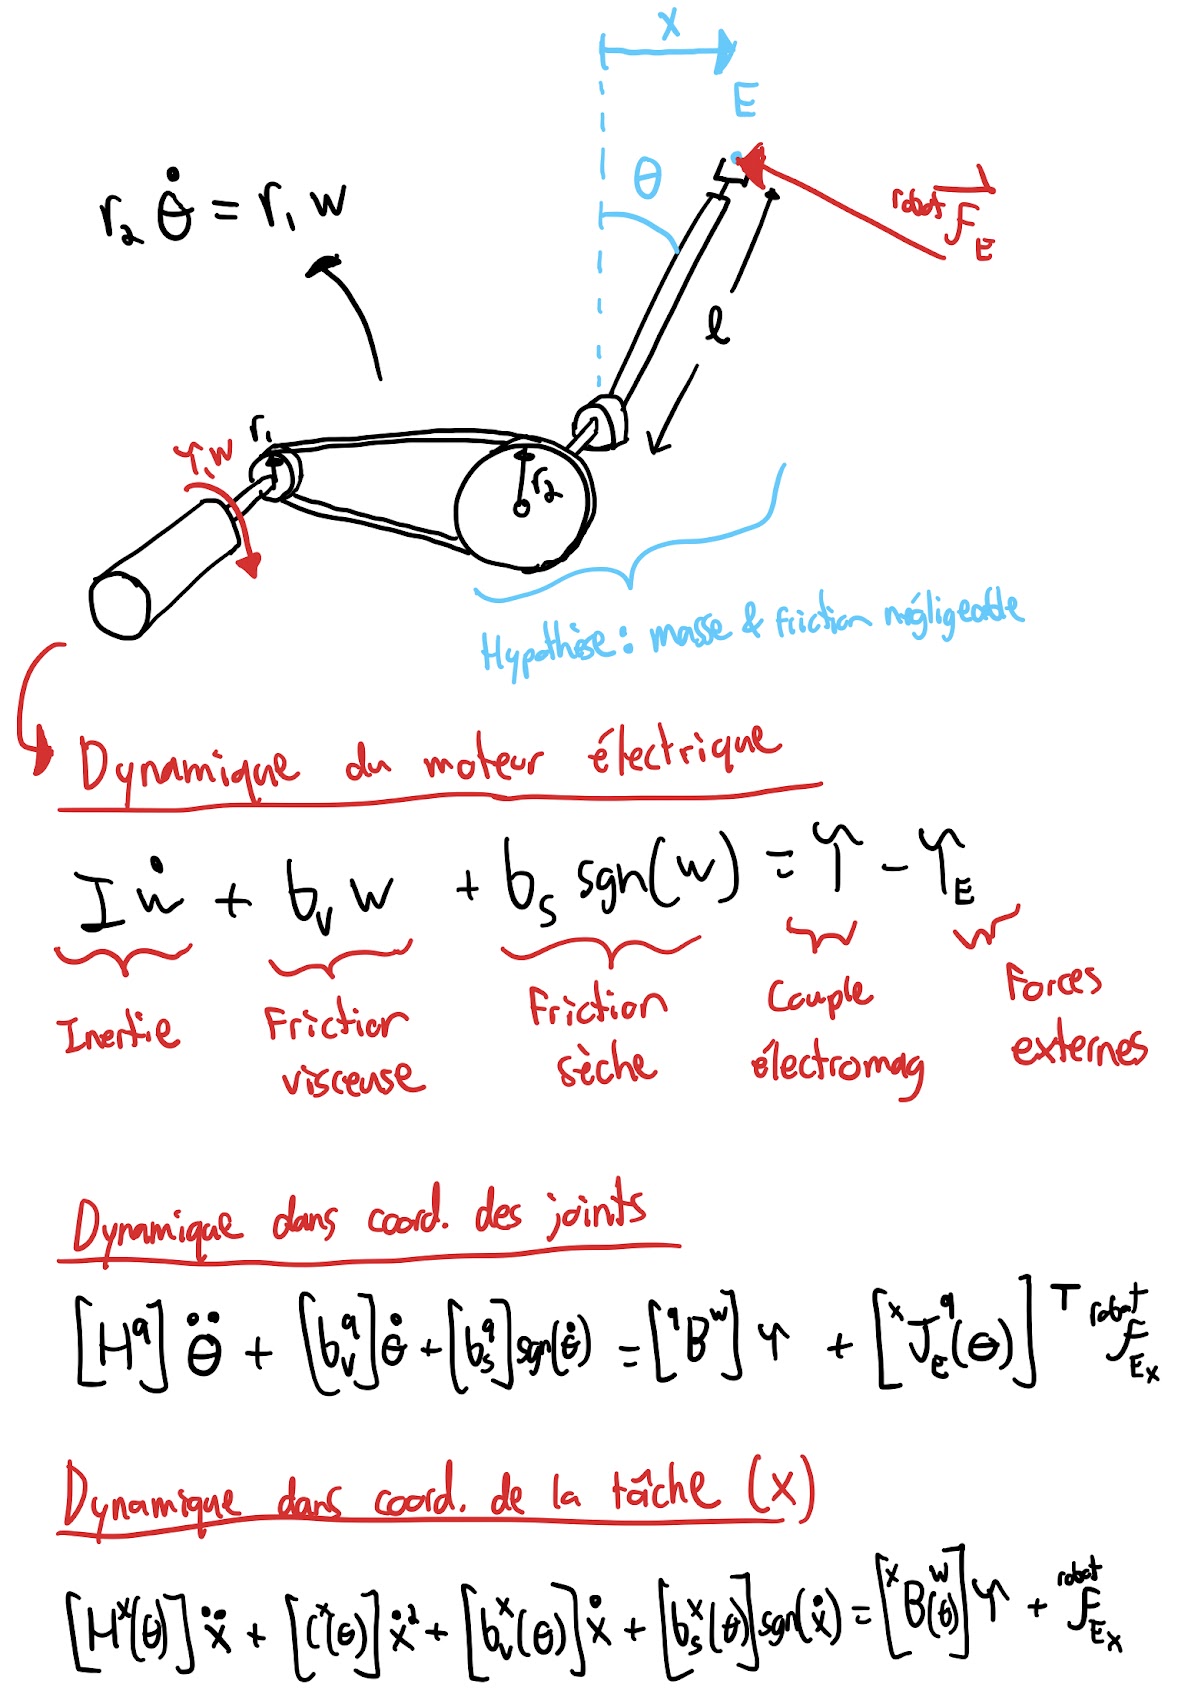 x
E
θ
r₂ θ̇ = r₁ w
robot F⃗_E
l
r₁
τ, w
r₂
Hypothèse : masse & friction négligeable
Dynamique du moteur électrique
I ẇ + b_v w + b_s sgn(w) = τ - τ_E
Inertie
Friction visceuse
Friction sèche
Couple électromag
Forces externes
Dynamique dans coord. des joints
[H^q] θ̈ + [b_v^q] θ̇ + [b_s^q] sgn(θ̇) = [^q B^w] τ + [^x J_e^q (θ)]^T robot F_Ex
Dynamique dans coord. de la tâche (x)
[H^x(θ)] ẍ + [C^x(θ)] ẋ² + [b_v^x(θ)] ẋ + [b_s^x(θ)] sgn(ẋ) = [^x B^w(θ)] τ + robot F_Ex